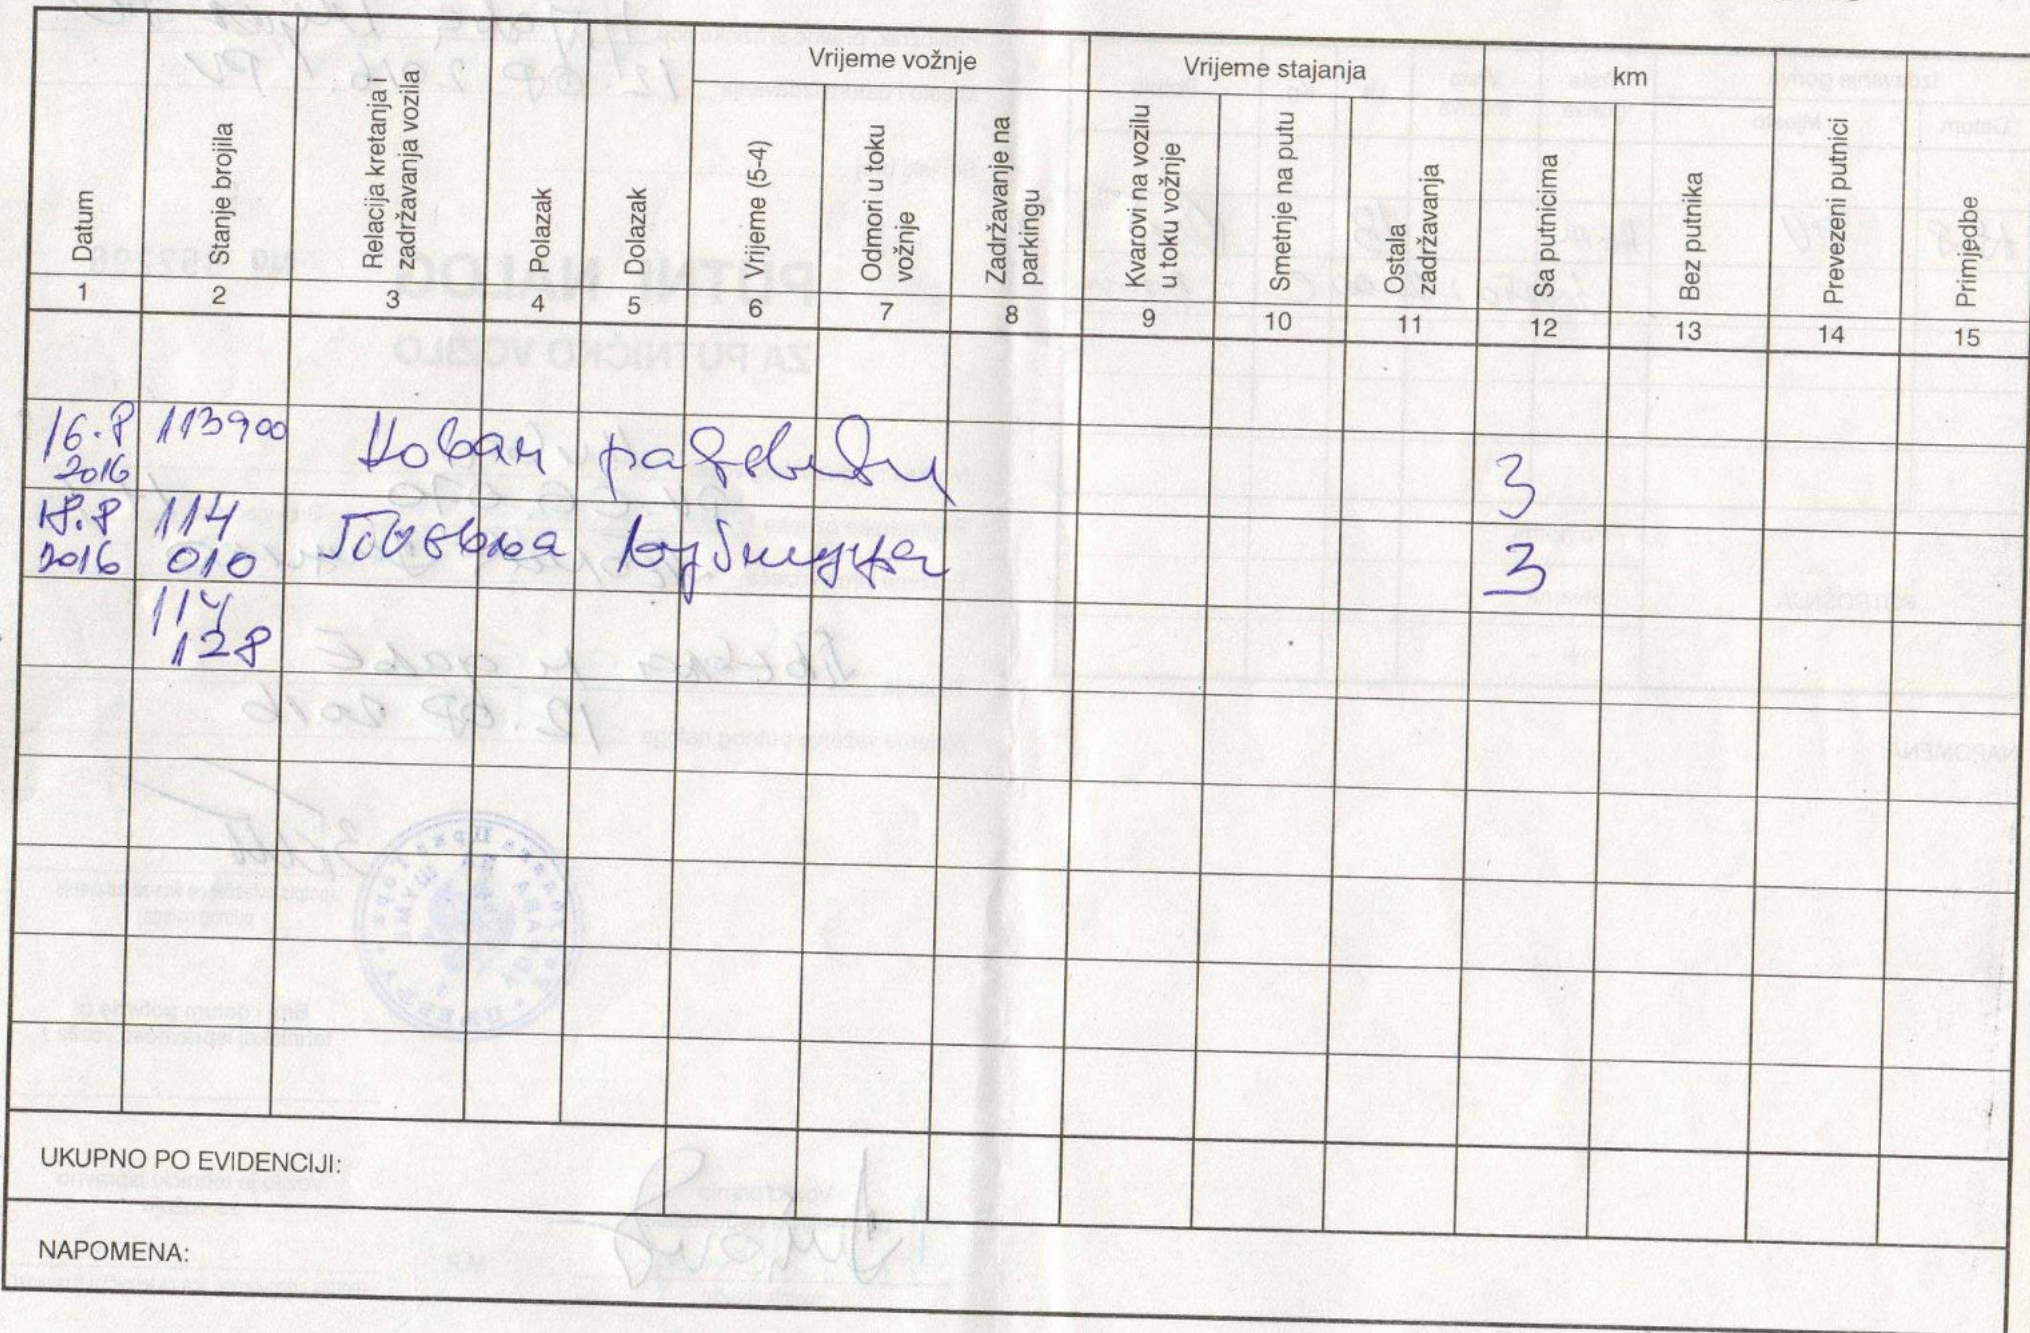 Vrijeme vožnje
Vrijeme stajanja
km
Datum
Stanje brojila
Relacija kretanja i
zadržavanja vozila
Polazak
Dolazak
Vrijeme (5-4)
Odmori u toku
vožnje
Zadržavanje na
parkingu
Kvarovi na vozilu
u toku vožnje
Smetnje na putu
Ostala
zadržavanja
Sa putnicima
Bez putnika
Prevezeni putnici
Primjedbe
1 2 3 4 5 6 7 8 9 10 11 12 13 14 15
16.8 113900
2016 3
18.8 114
2016 010 3
114
128
UKUPNO PO EVIDENCIJI:
NAPOMENA: